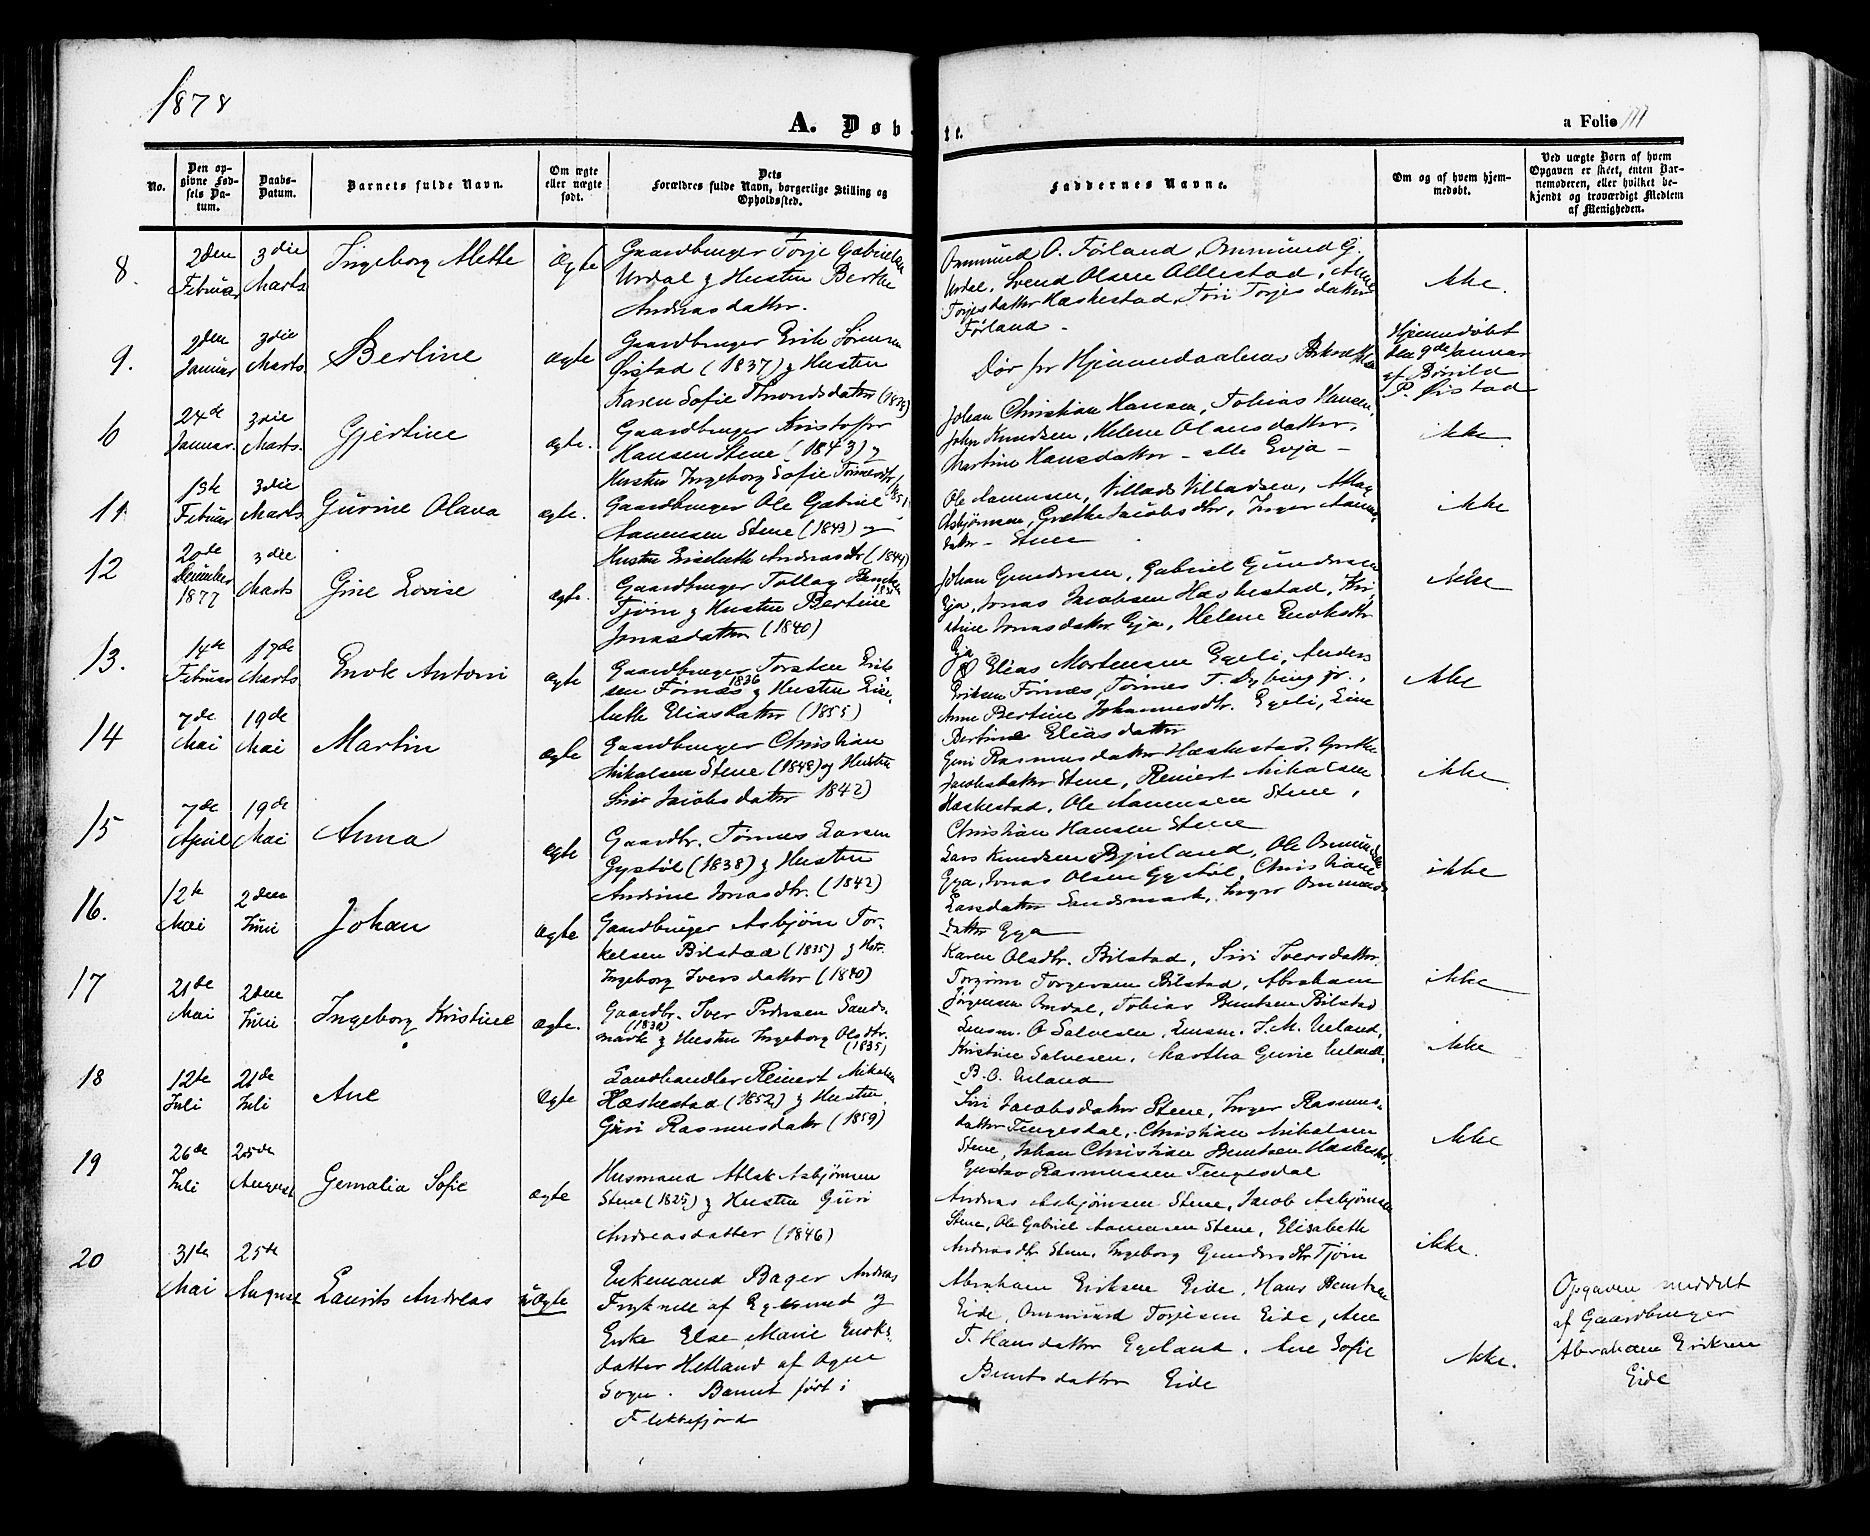 1878
A. Døb- te.
a Folio 111
No.
Den opgivne Fødsels Datum.
Daabs-Datum.
Barnets fulde Navn.
Om ægte eller uægte født.
Dets Forældres fulde Navn, borgerlige Stilling og Opholdssted.
Faddernes Navne.
Om og af hvem hjemmedøbt.
Ved uægte Born af hvem Opgaven er skeet, enten Barnemoderen, eller hvilket bekjendt og troværdigt Medlem af Menigheden.
8. 2den Februar 3die Marts Ingeborg Mette Ægte
Gaardbruger Torje Gabrielsen
Urdal og Hustru Berthe
Andreasdatter.
Ommund O. Førland, Ommund G.
Urdal, Svend Olsen Allestad, Ane
Torjesdatter Hæskestad, Siri Torjesdatter
Førland -
Ikke.
9. 2den Januar 3die Marts. Berline Ægte
Gaardbruger Erik Sørensen
Ørstad (1837) og Hustru
Karen Sofie Throndsdatter
Dør før Hjemmedaabens
Hjemmedøbt
den 9de Januar
af
P. Ørstad
6 24de Januar. 3die Marts. Gjertine ægte.
Gaardbruger Kristoffer
Hansen Stene (1843) og
Hustru Ingeborg Sofie Tønnesdtr
Johan Christian Hansen, Tobias Hansen,
John Knudsen, Helene Olausdatter,
Martine Hansdatter - alle Eoja -
ikke
11. 13te Februar 3die Marts Gurine Olava ægte.
Gaardbruger Ole Gabriel
Aanensen Stene (1843) og
Hustru Liselath Andreasdtr (1844)
Ole Aanensen, Villads Villadsen, Atlag
Asbjørnsen, Grethe Jacobsdtr, Inger Aanens
datter - Stene
ikke
12 20de December 1877 3die Marts Gine Lovise ægte.
Gaardbruger Tollag Bentsen
Tjørn og Hustru Bertine
Jonasdatter (1840)
Johan Gundersen, Gabriel Gundersen
Eja, Jonas Jacobsen Hæskestad, Kri
stine Jonasdatter Eja, Helene Enoksdtr
Eja
ikke
13. 14de Februar 17de Marts Enok Antoni ægte
Gaardbruger Torsten Erik
sen Førnæs 1836 og Hustru Lise
lath Eliasdatter (1855)
Elias Mortensen Egeli, Anders
Eriksen Førnes, Tønnes T. Dybing jr.,
Anne Bertine Johannesdtr. Egeli, Line
Bertine Eliasdatter
Ikke
14 7de Mai 19de Mai Martin ægte
Gaardbruger Christian
Mikalsen Stene (1848) og Hustru
Siri Jacobsdatter 1842)
Guri Rasmusdatter Hæskestad, Grethe
Jacobsdatter Stene, Reinert Mikalsen
Hæskestad, Ole Aanensen Stene,
Christian Hansen Stene
ikke
15 7de April 19de Mai Anna ægte
Gaardbr. Tønnes Larsen
Gystøl (1838) og Hustru
Andrine Jonasdtr. (1842)
Lars Knudsen Bjuland, Ole Ommundsen
Gya, Jonas Olsen Gystøl, Christiane
Larsdatter Sandsmark, Inger Ommunds
datter Gya
ikke
16. 12te Mai 2den Juni Johan ægte
Gaardbruger Asbjørn Tor-
kelsen Bilstad (1835) og Hstr.
Ingeborg Iversdatter (1840)
Karen Olsdtr. Bilstad, Siri Iversdatter
Torgrim Torgersen Bilstad, Abraham
Jørgensen Omdal, Tobias Bentsen Bilstad
ikke
17 21de Mai 2den Juni Ingeborg Kristine ægte.
Gaardbr. Iver Pedersen Sands-
mark (1830) og Hustru Ingeborg Olsdtr.
(1835)
Lensm. O Salvesen, Lensm. S. M. Ueland,
Kristine Salvesen, Martha Gurie Ueland,
B. O. Ueland
ikke
18 12te Juli 21de Juli Ane Ægte
Landhandler Reinert Mikalsen
Hæskestad (1852) og Hustru
Guri Rasmusdatr (1859)
Siri Jacobsdatter Stene, Inger Rasmus-
datter Tengesdal, Christian Mikalsen
Stene, Johan Christian Bentsen Hæskestad,
Gustav Rasmussen Tengesdal
ikke
19 26de Juli 25de August Gemalia Sofie ægte
Husmand Atlak Asbjørnsen
Stene (1825) og Hustru Guri
Andreasdatter (1846)
Andreas Asbjørnsen Stene, Jacob Asbjørnsen
Stene, Ole Gabriel Aanensen Stene, Elisabeth
Andreasdtr Stene, Ingeborg Gundersdtr Tjørn
ikke.
20 31te Mai 25de August Laurits Andreas uægte
Enkemand Bager Andreas
af Egersund og
Enke Else Marie Enoks
datter Hetland af Ogne
Sogn. Barnet født i
Flekkefjord
Abraham Eriksen Eide, Hans Bentsen
Eide, Ommund Torjesen Eide, Ane
T. Hansdatter Egeland, Ane Sofie
Bentsdatter Eide
ikke.
Opgaven meddelt
af Gaardbruger
Abraham Eriksen
Eide